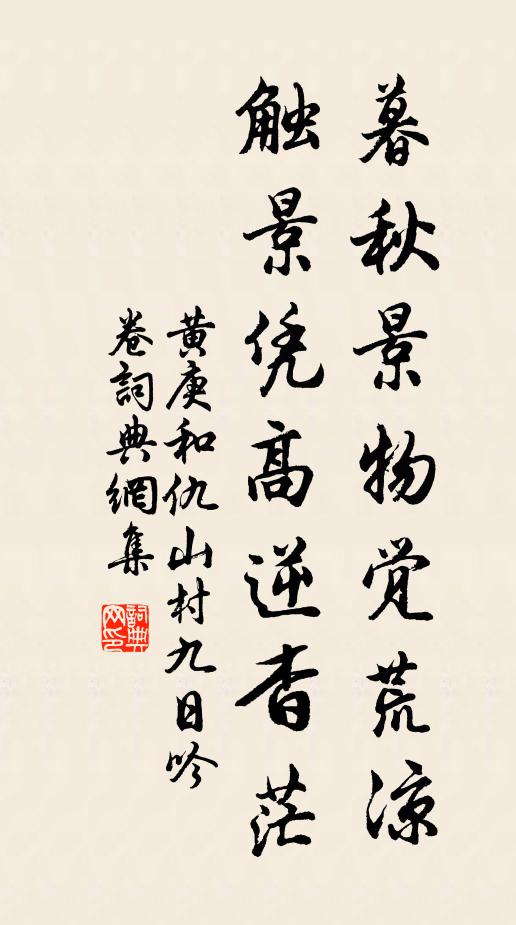 暮秋景物觉荒凉
触景凭高逆杳茫
黄庚和仇山村九日吟
卷詞典網集
詞典网印